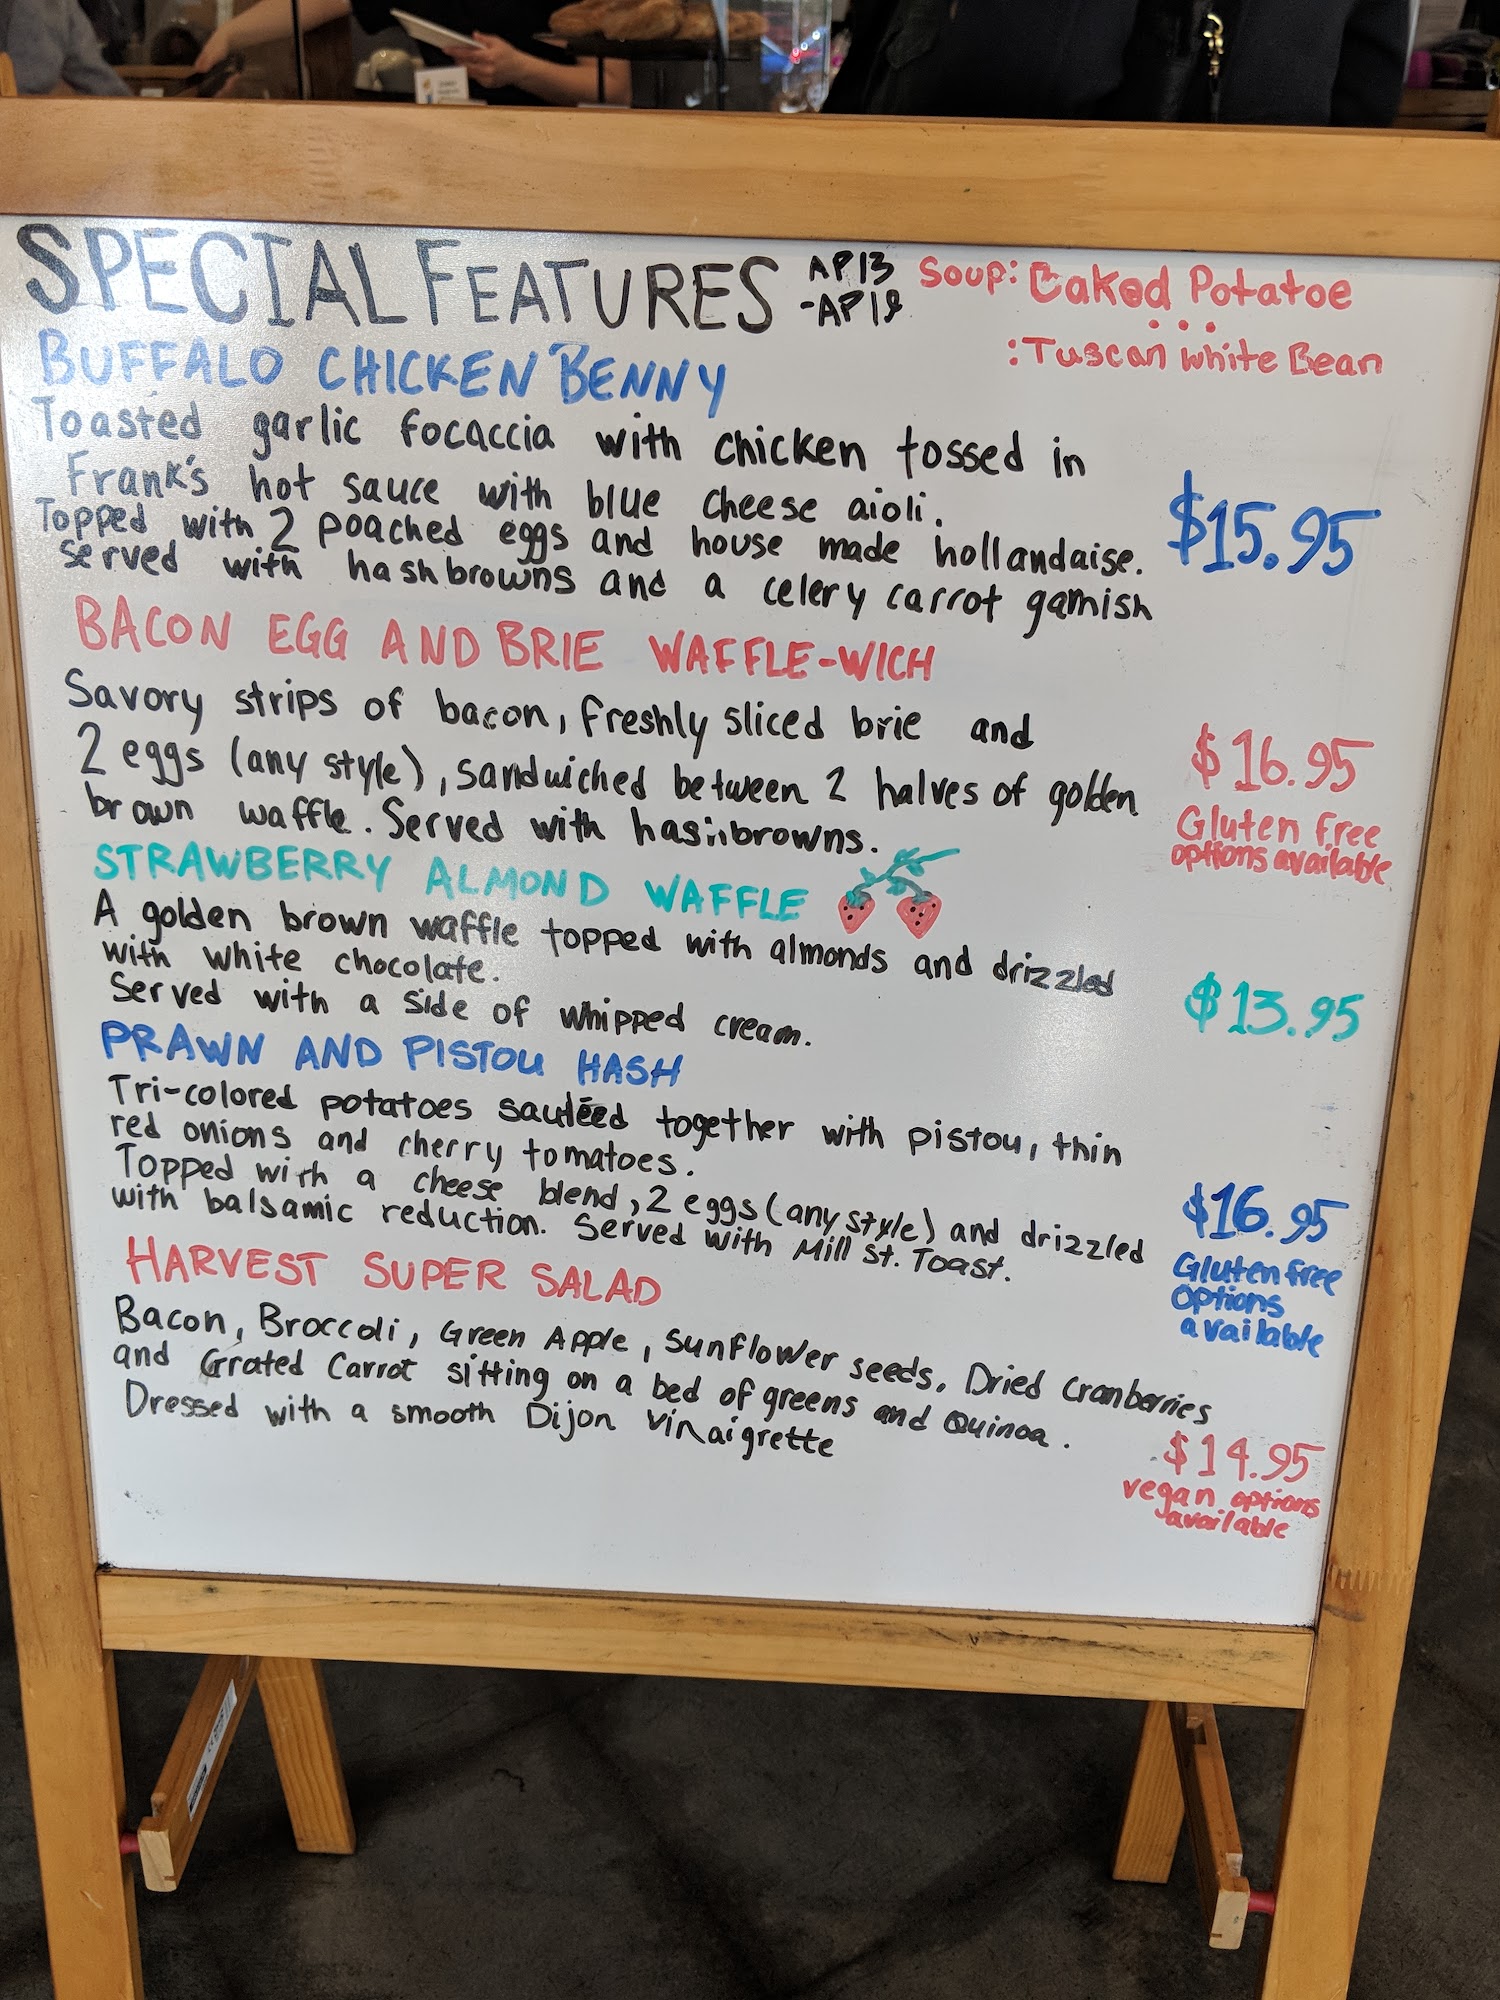 SPECIAL FEATURES
AP13
-AP19
Soup: Baked Potatoe
: Tuscan white Bean
BUFFALO CHICKEN BENNY
Toasted garlic focaccia with chicken tossed in
Frank's hot sauce with blue cheese aioli.
Topped with 2 poached eggs and house made hollandaise.
served with hashbrowns and a celery carrot garnish
$15.95
BACON EGG AND BRIE WAFFLE-WICH
Savory strips of bacon, freshly sliced brie and
2 eggs (any style), sandwiched between 2 halves of golden
brown waffle. Served with hashbrowns.
$16.95
Gluten free
options available
STRAWBERRY ALMOND WAFFLE
A golden brown waffle topped with almonds and drizzled
with white chocolate.
Served with a side of whipped cream.
$13.95
PRAWN AND PISTOU HASH
Tri-colored potatoes sautéed together with pistou, thin
red onions and cherry tomatoes.
Topped with a cheese blend, 2 eggs (any style) and drizzled
with balsamic reduction. Served with Mill St. Toast.
$16.95
Gluten free
options
available
HARVEST SUPER SALAD
Bacon, Broccoli, Green Apple, Sunflower seeds, Dried Cranberries
and Grated Carrot sitting on a bed of greens and Quinoa.
Dressed with a smooth Dijon Vinaigrette
$14.95
vegan options
available